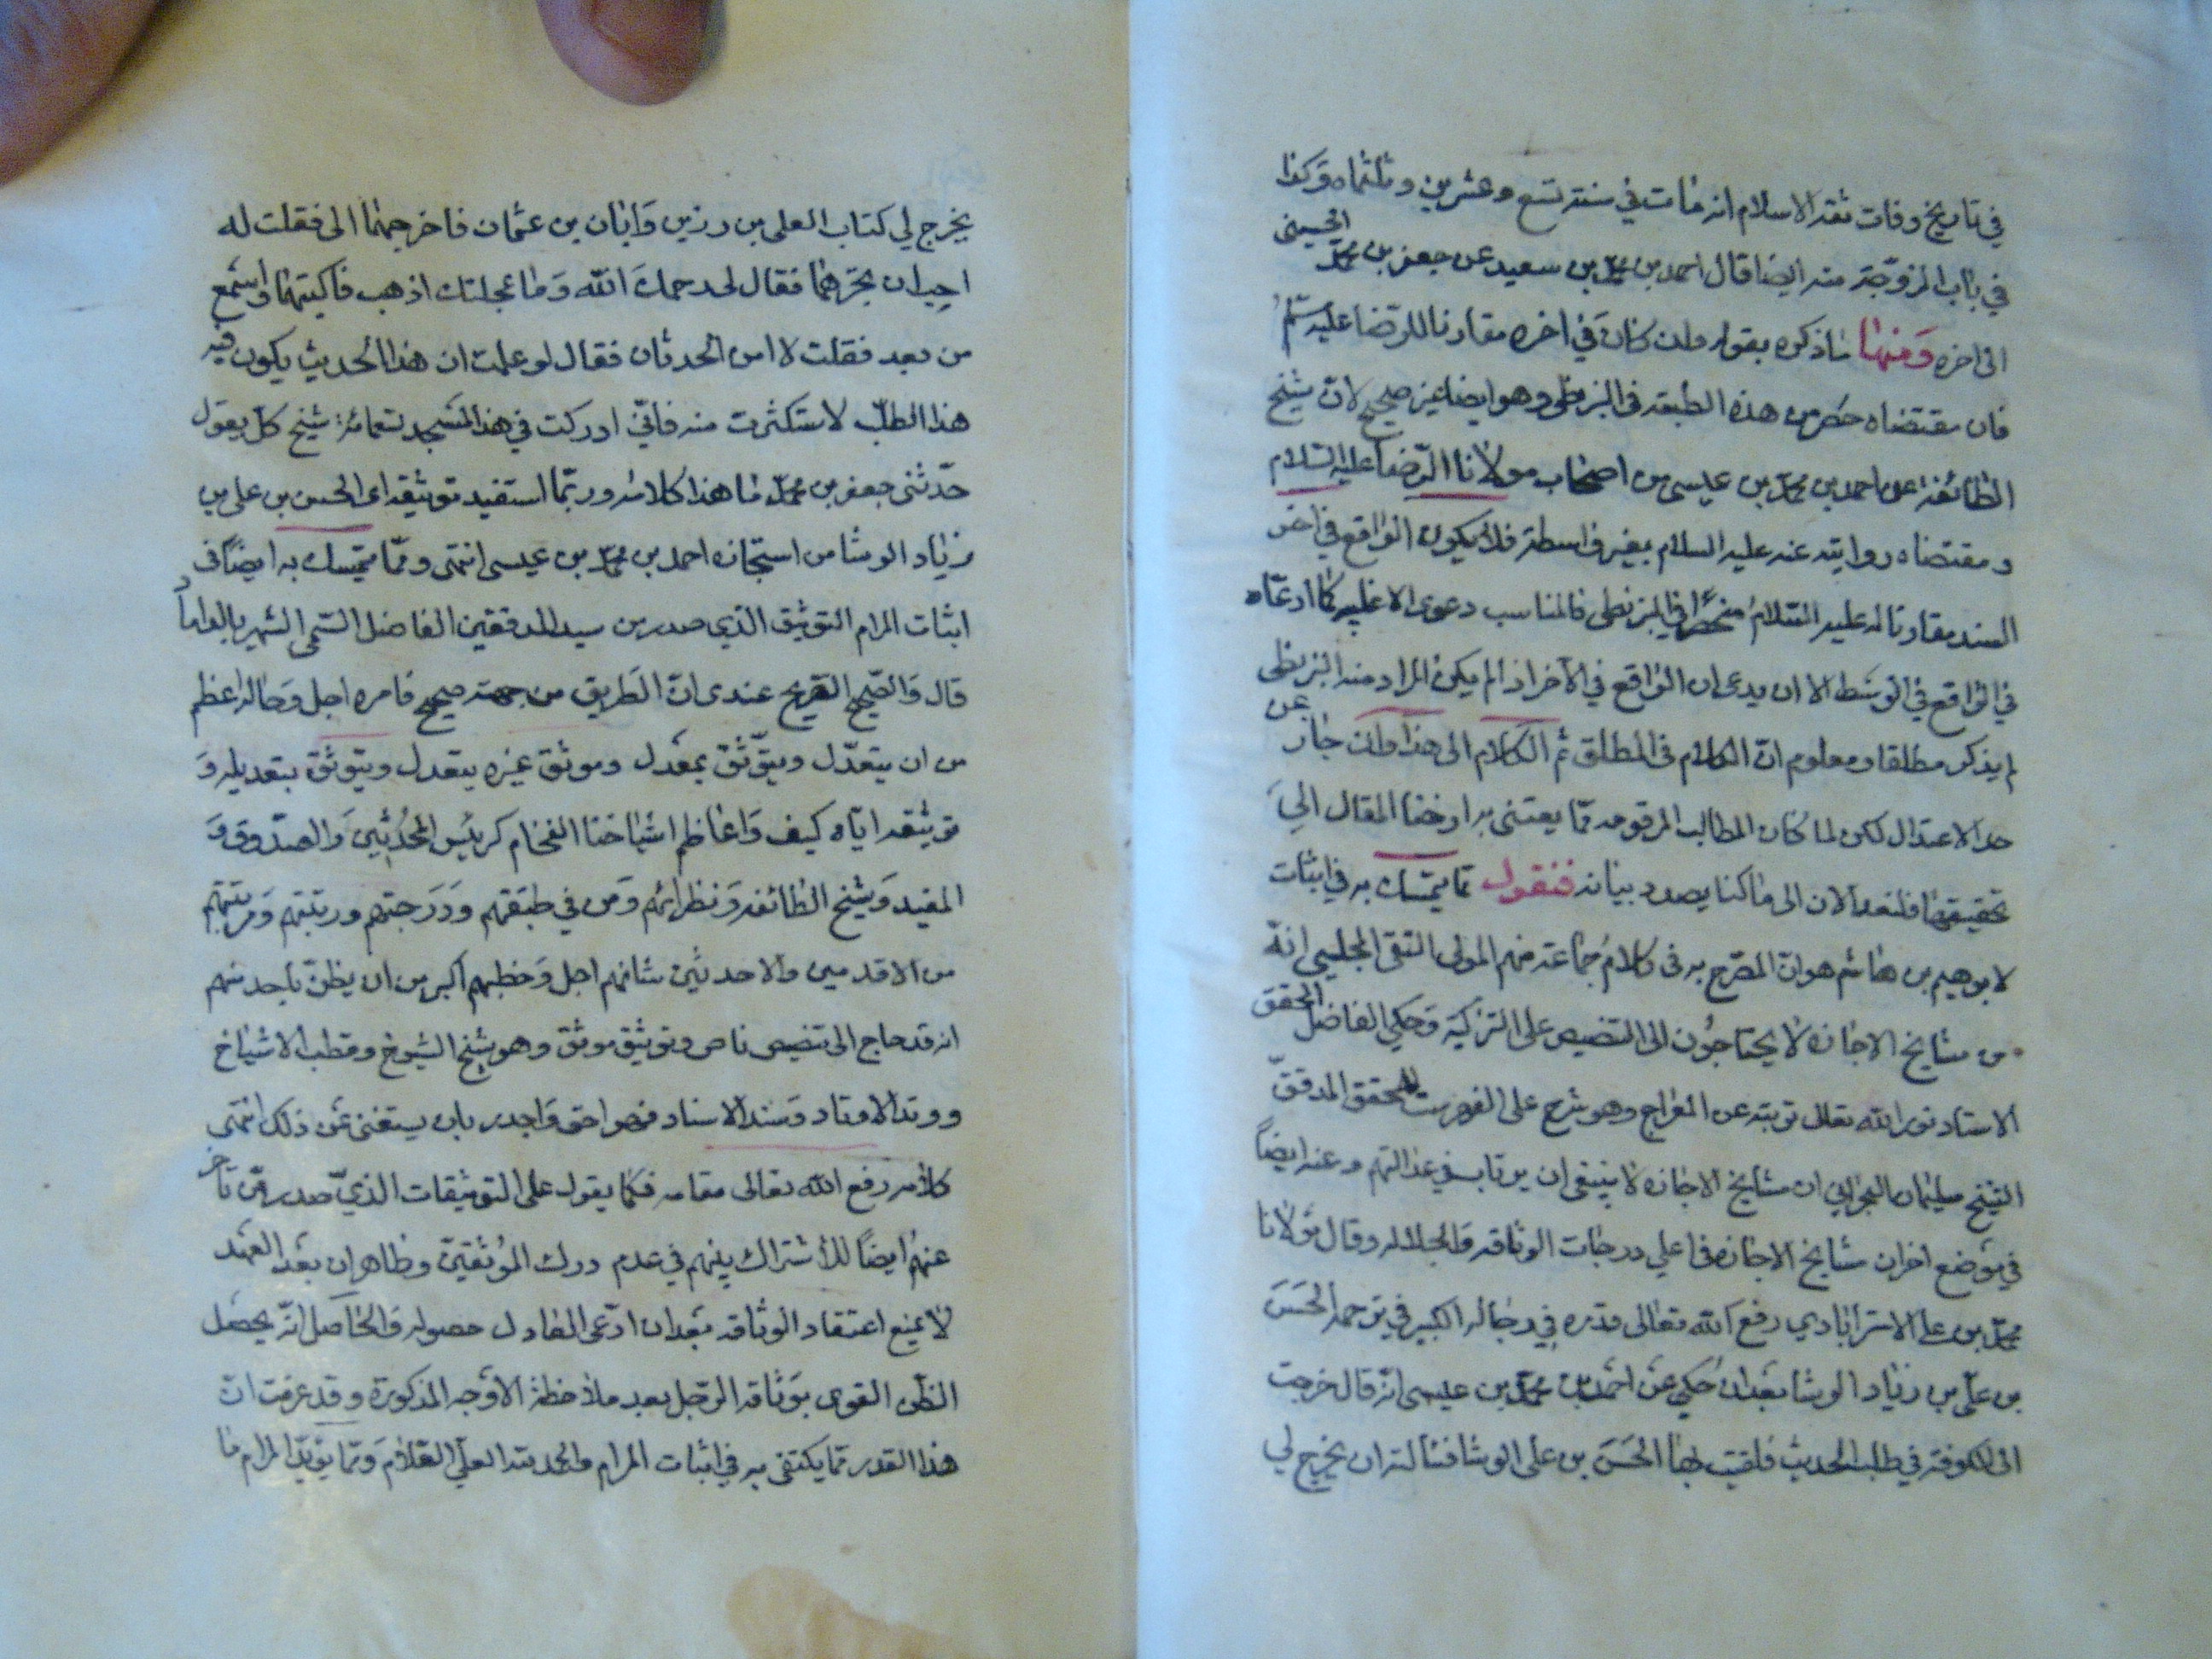 في تاريخ وفات ثقة الاسلام انه مات في سنة تسع وعشرين وثلثماه وكذا
في باب المزوجة منه ايضا قال احمد بن محمد بن سعيد عن جعفر بن محمد الحسيني
الى اخره ومنها ما ذكره بقوله وان كان في اخره مقارنا للرضا عليه سلم
فان مقتضاه حصر من هذه الطبقه في البزنطي وهو ايضا غير صحيح لان شيخ
الطائفة عد احمد بن محمد بن عيسى من اصحاب مولانا الرضا عليه السلام
ومقتضاه روايته عنه عليه السلام بغير واسطة فلا يكون الواقع في اخر
السند مقارنا له عليه السلام منحصرا في البزنطي فالمناسب دعوى الاغلبيه كما ادعاه
في الواقع في الوسط الا ان يدعى ان الواقع في الآخر اذا لم يكن المراد منه البزنطى
لم يذكر مطلقا ومعلوم ان الكلام في المطلق ثم الكلام الى هذا وان جاز عن
حد الاعتدال لكن لما كان المطالب المرقومه مما يعتنى به ارخينا المقال الى
تحقيقها فلنعد الان الى ما كنا بصدد بيانه فنقول مما يتمسك به في اثبات
لابرهيم بن هاشم هو ان المصرح به في كلام جماعة منهم المولى التقى المجلسي انه
من مشايخ الاجازه لا يحتاجون الى التنصيص على التزكية وحكي الفاضل المحقق
الاستاد نور الله تعالى تربته عن المعراج وهو شرح على الفهرست للمحقق المدقق
الشيخ سليمان البحراني ان مشايخ الاجازه لا ينبغى ان يرتاب في عدالتهم وعنه ايضاً
في موضع اخر ان مشايخ الاجازه في اعلي درجات الوثاقه والجلاله وقال مولانا
محمد بن على الاسترابادي رفع الله تعالى قدره في رجاله الكبير في ترجمه الحسن
بن على بن زياد الوشا بعد ان حكي عن احمد بن محمد بن عيسى انه قال خرجت
الى الكوفه في طلب الحديث فلقيت بها الحسن بن على الوشا فسألته ان يخرج لي
يخرج لي كتاب العلى بن رزين وابان بن عثمان فاخرجهما الى فقلت له
احب ان تجيزهما فقال لى رحمك الله وما عجلتك اذهب فاكتبهما واسمع
من بعد فقلت لا امن الحدثان فقال لو علمت ان هذا الحديث يكون فيه
هذا الطلب لاستكثرت منه فاني ادركت في هذا المسجد تسعمائة شيخ كل يقول
حدثنى جعفر بن محمد ما هذا كلامه وربما استفيد توثيقه اى الحسن بن على بن
زياد الوشا من استجازه احمد بن محمد بن عيسى انتهى ومما يتمسك به ايضاً في
اثبات المرام التوثيق الذي صدر من سيد المدققين الفاضل السمى الشهير بالداماد
قال والصحيح الصريح عندى ان الطريق من جهته صحيح فامره اجل وحاله اعظم
من ان يتعدل ويتوثق بمعدل وموثق غيره يتعدل ويتوثق بتعديله و
توثيقه اياه كيف واعاظم اشياخنا الفخام كرئيس المحدثين والصدوق و
المفيد وشيخ الطائفه ونظرائهم ومن في طبقتهم ودرجتهم ورتبتهم ومرتبتهم
من الاقدمين والاحدثين شانهم اجل وخطبهم اكبر من ان يظن باحد منهم
انه قد حاج الى تنصيص ناص وتوثيق موثق وهو شيخ الشيوخ وقطب الاشياخ
ووتد الاوتاد وسند الاسناد فهو احق واجدر بان يستغنى عن ذلك انتهى
كلامه رفع الله تعالى مقامه فكما يقول على التوثيقات الذي صدر من تاخر
عنهم ايضاً للاشتراك بينهم في عدم درك الموثقين وظاهر ان بعد العهد
لا يمنع اعتقاد الوثاقه بعد ان ادعى العادل حصوله والحاصل انه يحصل
الظن القوى بوثاقه الرجل بعد ملاحظة الاوجه المذكورة وقد عرفت ان
هذا القدر مما يكتفى به في اثبات المرام والحمد لله العلى العلام ومما يؤيد المرام ما